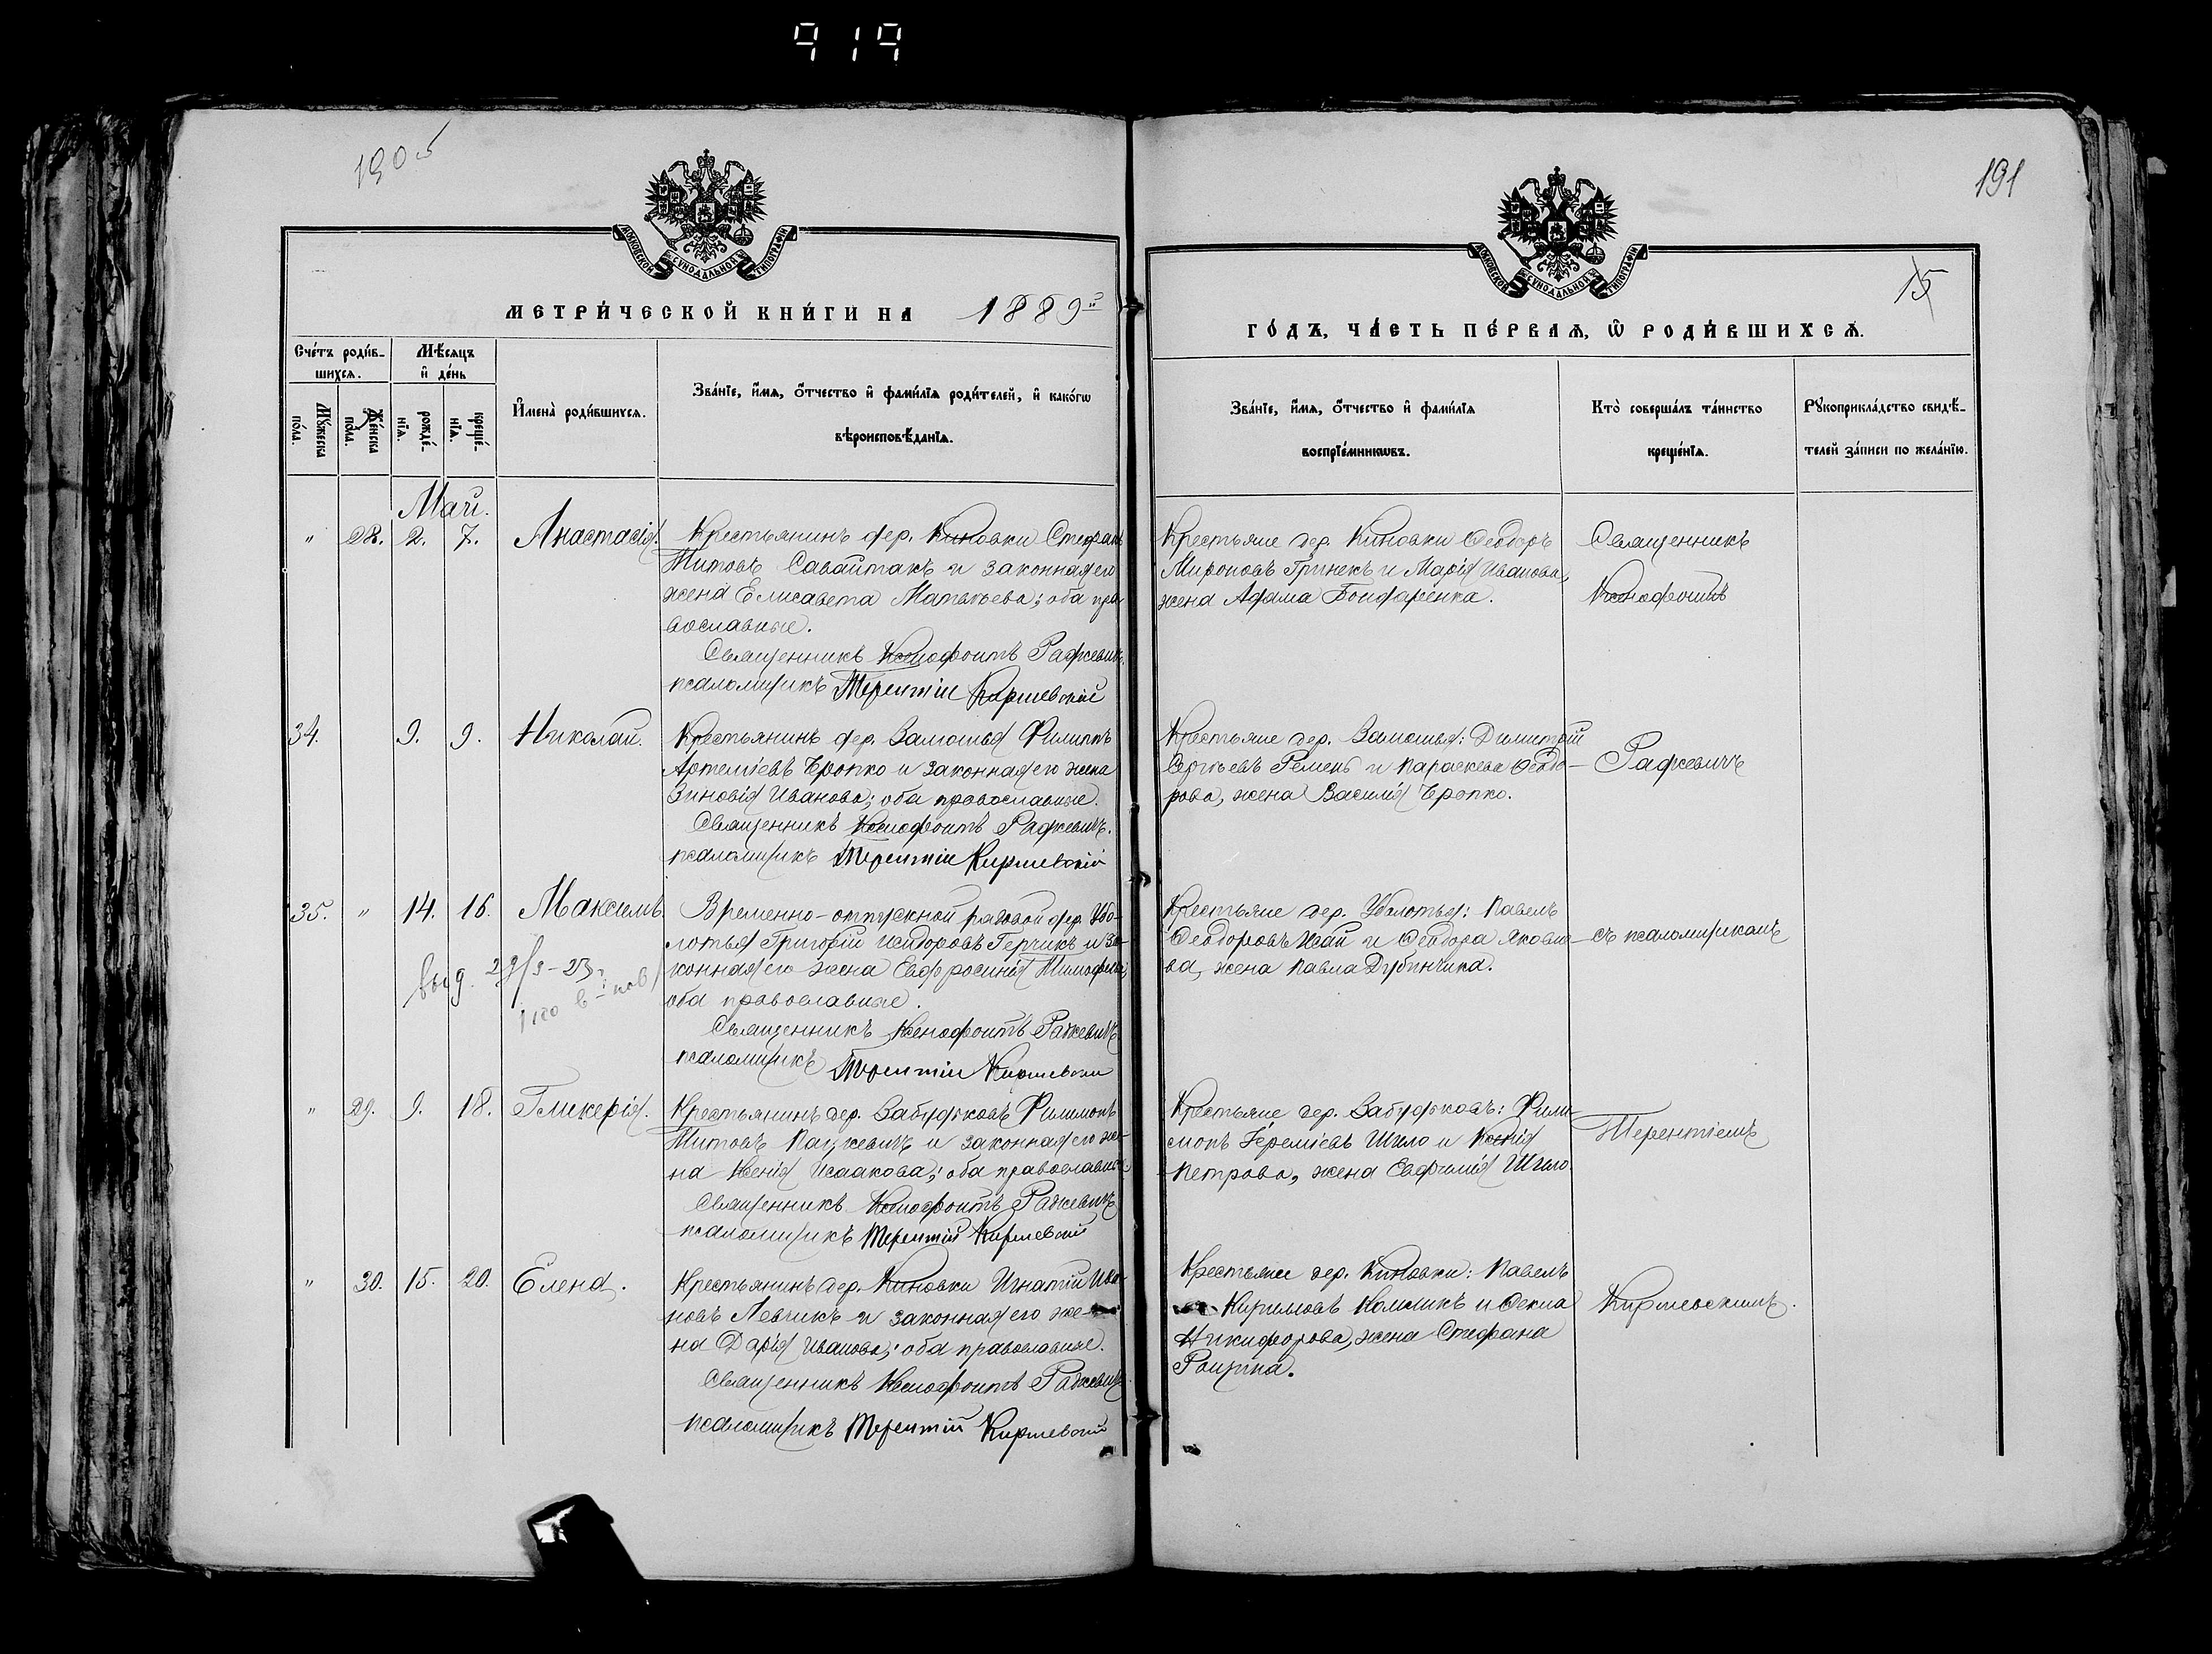 919
190 об
191
МОСКОВСКОЙ СУНОДАЛЬНОЙ ТИПОГРАФІИ
МЕТРИ́ЧЕСКОЙ КНИ́ГИ НА 1889й
МОСКОВСКОЙ СУНОДАЛЬНОЙ ТИПОГРАФІИ
15
ГО́ДЪ, ЧА́СТЬ ПЕ́РВАѦ, Ѡ РОДИ́ВШИХСѦ.
Сче́тъ роди́в-
шихсѧ.
Мѣ́сѧцъ
и де́нь
Мꙋ́жеска
по́ла.
Же́нска
по́ла.
рожде́-
нїѧ.
креще́-
нїѧ.
Имена̀ роди́вшихсѧ.
Зва́нїе, и́мѧ, о́тчество и фами́лїѧ роди́телей, и како́гѡ
вѣроисповѣ́данїѧ.
Зва́нїе, и́мѧ, о́тчество и фами́лїѧ
воспрїе́мникѡвъ.
Кто̀ соверша́лъ та́инство
креще́нїѧ.
Рꙋкоприкла́дство свидѣ́-
телей за́писи по жела́нїю.
Май.
" 28. 2. 7. Анастасія.
Крестьянинъ дер. Киновки Стефанъ
Титовъ Савайтакъ и законная его
жена Елисавета Матвѣева; оба пра-
вославные.
Священникъ Ксенофонтъ Радкевичъ.
псаломщикъ Терентій Киршевскій
Крестьяне дер. Киновки Ѳеодоръ
Мироновъ Гринекъ и Марія Иванова,
жена Адама Бондаренка.
Священникъ
Ксенофонтъ
34. 9. 9. Николай.
Крестьянинъ дер. Замошья Филиппъ
Артеміевъ Еропко и законная его жена
Зиновія Иванова; оба православные.
Священникъ Ксенофонтъ Радкевичъ.
псаломщикъ Терентій Киршевскій
Крестьяне дер. Замошья: Димитрій
Сергѣевъ Ремень и Параскева Ѳеодо-
рова, жена Василія Еропко.
Радкевичъ
35. " 14. 16. Максимъ.
выд. 29/3-23
Временно-отпускной рядовой дер. Убо-
лотья Григорій Исидоровъ Герчикъ и за-
конная его жена Евфросинія Тимофеева;
оба православные.
Священникъ Ксенофонтъ Радкевичъ
псаломщикъ Терентій Киршевскій
Крестьяне дер. Уболотья: Павелъ
Ѳеодоровъ Жай и Ѳеодора Яковле-
ва, жена Павла Дубинчика.
съ псаломщикомъ
" 29. 9. 18. Гликерія.
Крестьянинъ дер. Забудьковъ Филимонъ
Титовъ Пацкевичъ и законная его же-
на Ксенія Исаакова; оба православные
Священникъ Ксенофонтъ Радкевичъ
псаломщикъ Терентій Киршевскій
Крестьяне дер. Забудьковъ: Фили-
монъ Іереміевъ Шило и Ксенія
Петрова, жена Евфимія Шило.
Терентіемъ
" 30. 15. 20. Елена.
Крестьянинъ дер. Киновки Игнатій Ива-
новъ Левчикъ и законная его же-
на Дарія Иванова; оба православные.
Священникъ Ксенофонтъ Радкевичъ
псаломщикъ Терентій Киршевскій
Крестьяне дер. Киновки: Павелъ
Кириловъ Комликъ и Ѳекла
Никифорова, жена Стефана
Рощина.
Киршевскимъ.